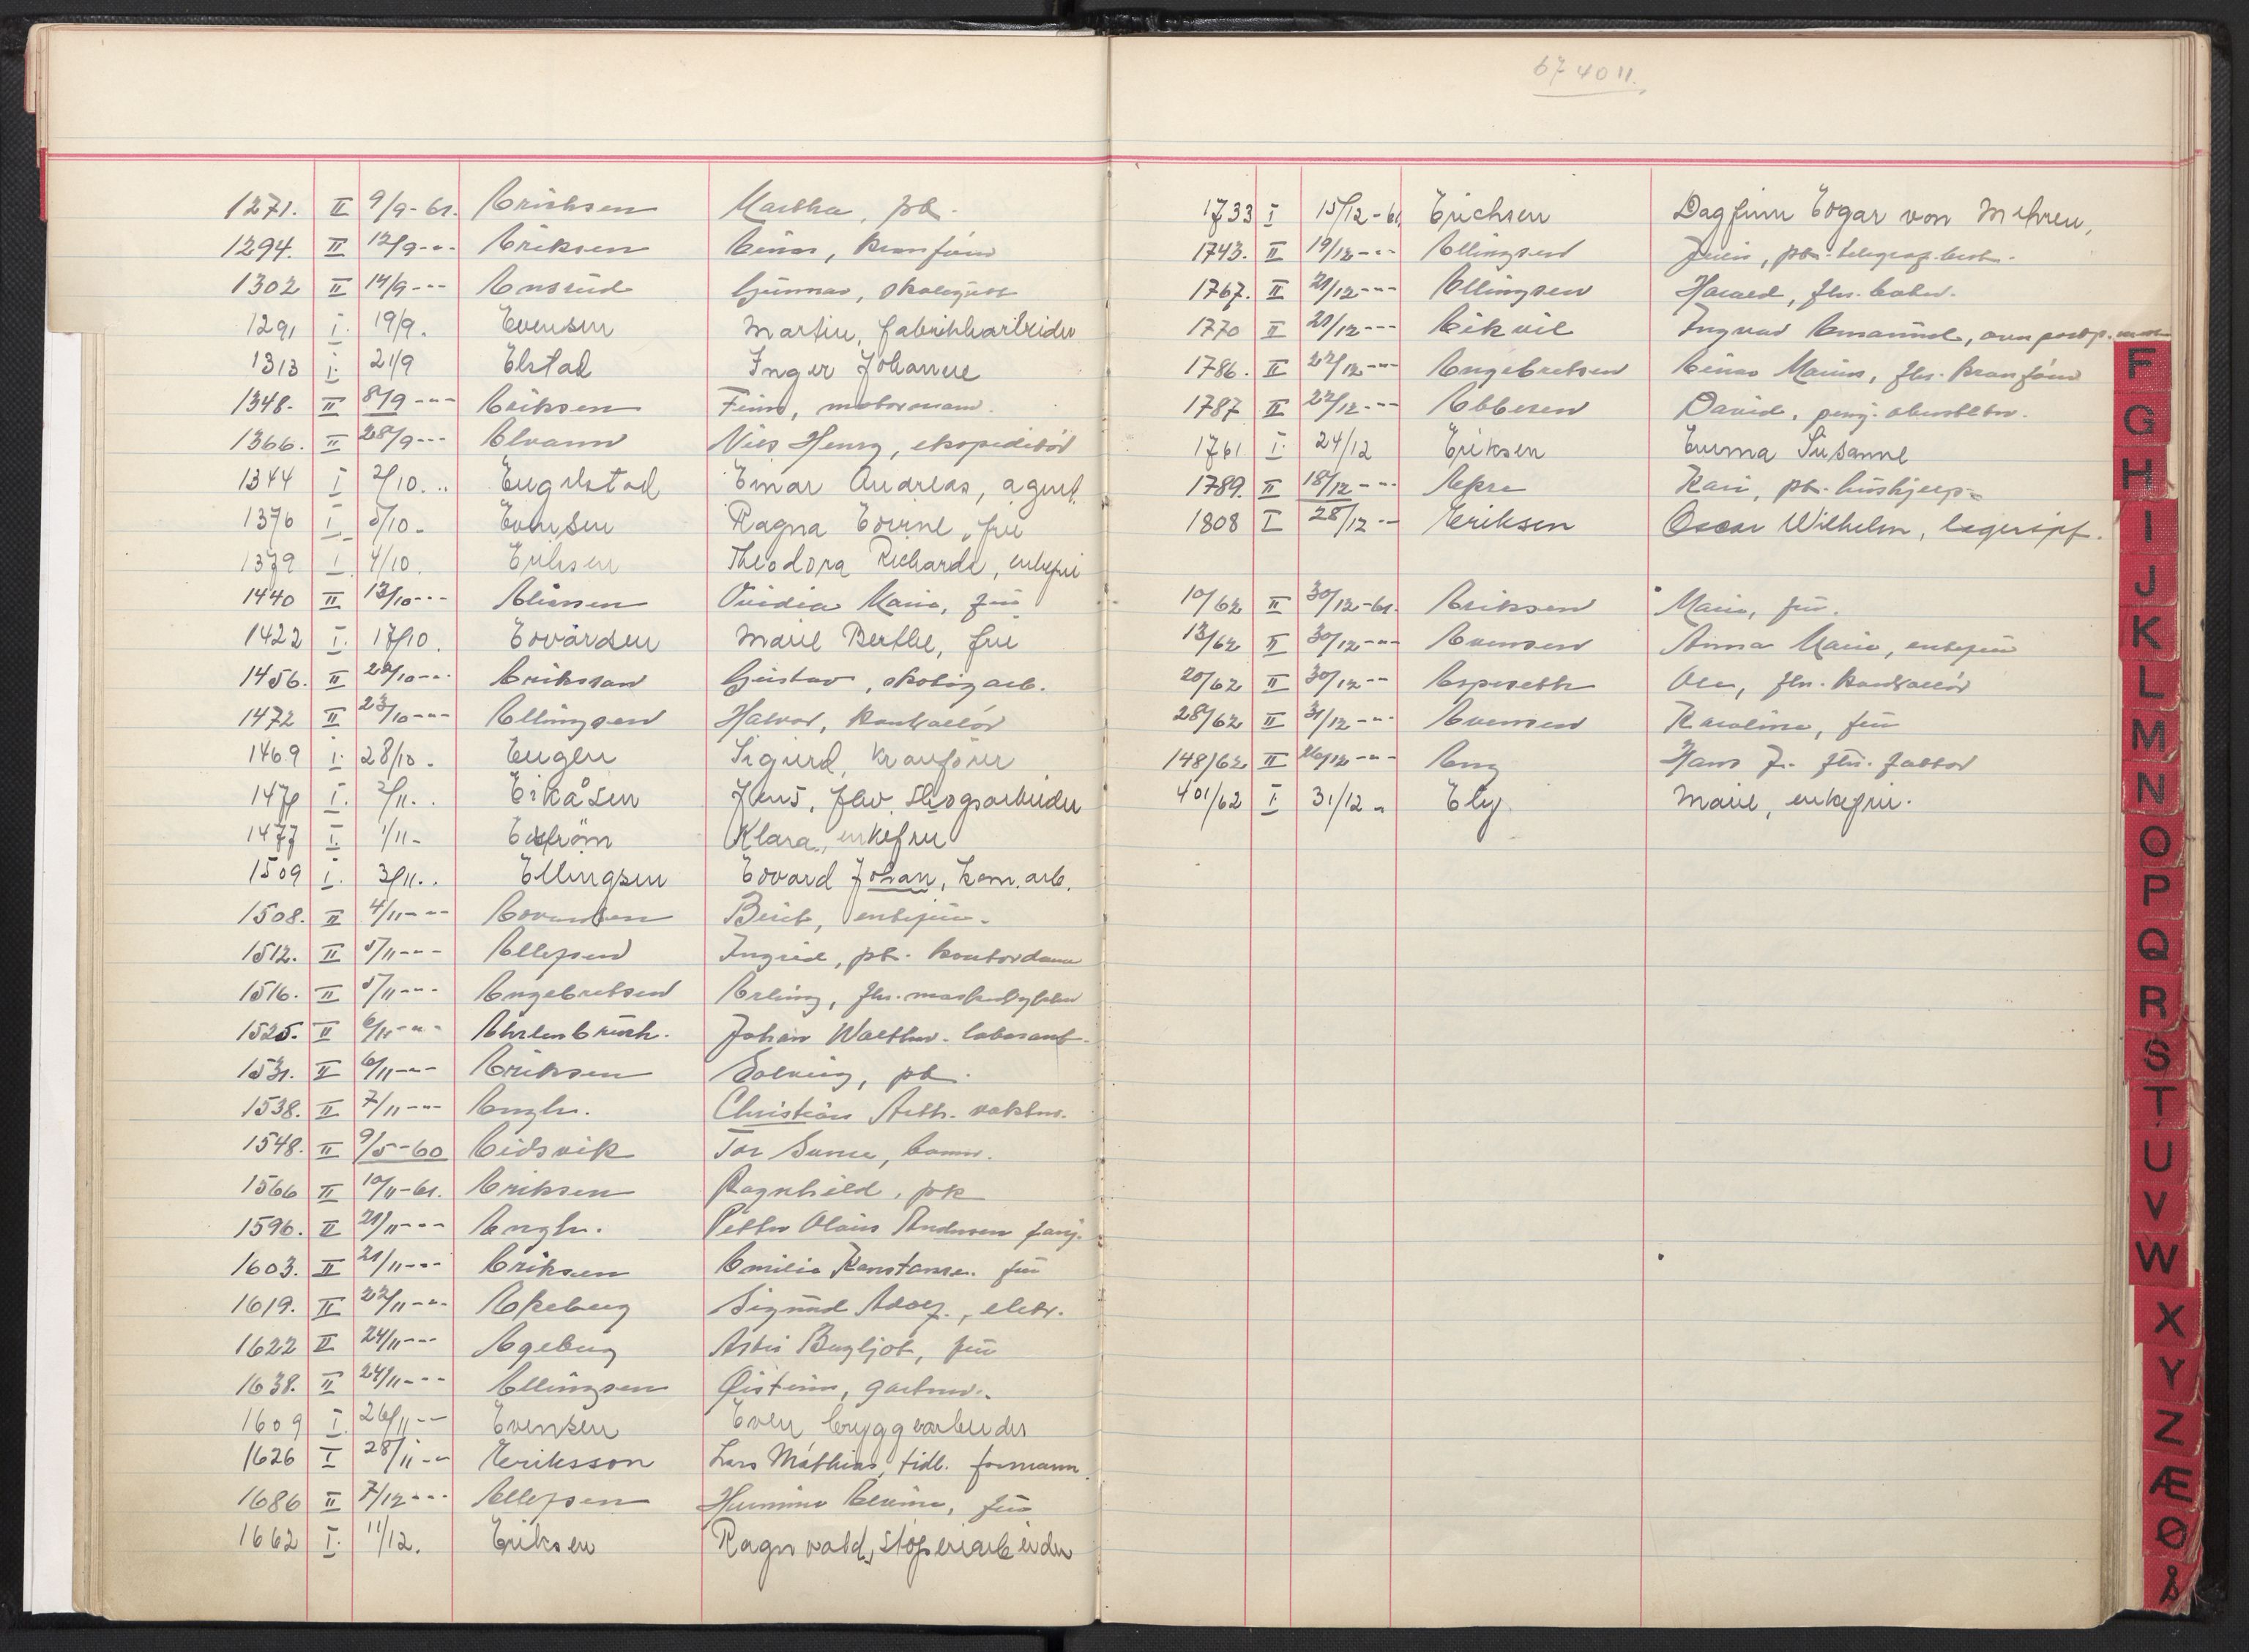 1271. II 9/9-61. Erichsen Martha, pk.
1294. II 12/9--- Eriksen Einar, kranfører
1302 II 14/9--- Ensrud Gunnar,
1291 I. 19/9. Evensen Martin, fabrikkarbeider
1313 I. 21/9 Elstad Inger Johanne
1348. II 8/9--- Eriksen Finn, motormann.
1366. II 28/9--- Elvann Nils Henry, ekspeditør
1344 I 2/10... Engelstad Einar Andreas, agent.
1376 I 5/10- Evensen Ragna Edvine, fru
1379 I. 4/10. Eriksen Theodora Richarda, enkefru
1440 II 13/10--- Eliassen Ovidia Marie, fru
1422 I. 17/10. Edvardsen Marie Berthe, fru
1456. II 20/10--- Eriksson Gustav,
1472 II 23/10--- Ellingsen Halvor, kontrollør
1469 I. 28/10. Engen Sigurd, kranfører
147 I. 2/11.. Eikåsen Jens, fhv. skogsarbeider
1477 I. 1/11- Ekstrøm Klara, enkefru
1509 I. 3/11.. Ellingsen Edvard Johan, kom. arb.
1508. II 4/11--- Berit, enkefru.
1512. II 5/11--- Ellefsen Ingrid, pk. kontordame
1516. II 5/11--- Engebretsen Erling, fhv.
1525. II 6/11--- Ehrlenbruch. Johan Walther. laborant.
1531. II 6/11--- Eriksen Solveig, pk.
1538. II 7/11--- Engh. Christian Arth. vaktm.
1548. II 9/5-60 Eidsvik Tor
1566 II 10/11-61. Eriksen Ragnhild, pk
1596. II 21/11--- Engh. Petter Olaus Andersen
1603. II 21/11--- Eriksen Emilie Konstanse. fru
1619. II 22/11--- Ekeberg Sigurd Adolf., elektr.
1622 II 24/11--- Egeberg Bergljot, fru
1638. II 24/11--- Ellingsen Øistein, gartner.
1609 I. 26/11-- Evensen Even bryggearbeider
1626 I 28/11-- Eriksson Lars Mathias, tidl. formann.
1686 II 7/12--- Ellefsen fru
1662 I. 11/12. Eriksen Ragnvald, støperiarbeider
674011.
1733 I 15/12-61 Erichsen Dagfinn Edgar von Mehren,
1743. II 19/12--- Ellingsen pk. telegraf.best.
1767. II 21/12--- Ellingsen Harald, fhv.
1770 II 21/12--- Eikvil Ingvar Emanuel,
1786. II 22/12--- Engebretsen Einar Marius, fhv. kranfører
1787 II 22/12--- Ebbesen David, penj.
1761 I. 24/12 Eriksen Emma Susanne
1789. II 18/12--- Kari, pk. hushjelp.
1808 I 28/12-- Eriksen Oscar Wilhelm, lagersjef.
10/62 II 30/12-61. Eriksen Marie, fru.
13/62 II 30/12--- Evensen Anna Marie, enkefru
20/62 II 30/12-- Espeseth Ole, fhv. kontrollør
28/62 II 31/12--- Evensen Karoline, fru
148/62 II 26/12--- Eng Hans J. fhv. faktor
401/62 I 31/12- Ely Marie, enkefru.
F
G
H
I
J
K
L
M
N
O
P
Q
R
S
T
U
V
W
X
Y
Z
Æ
Ø
Å